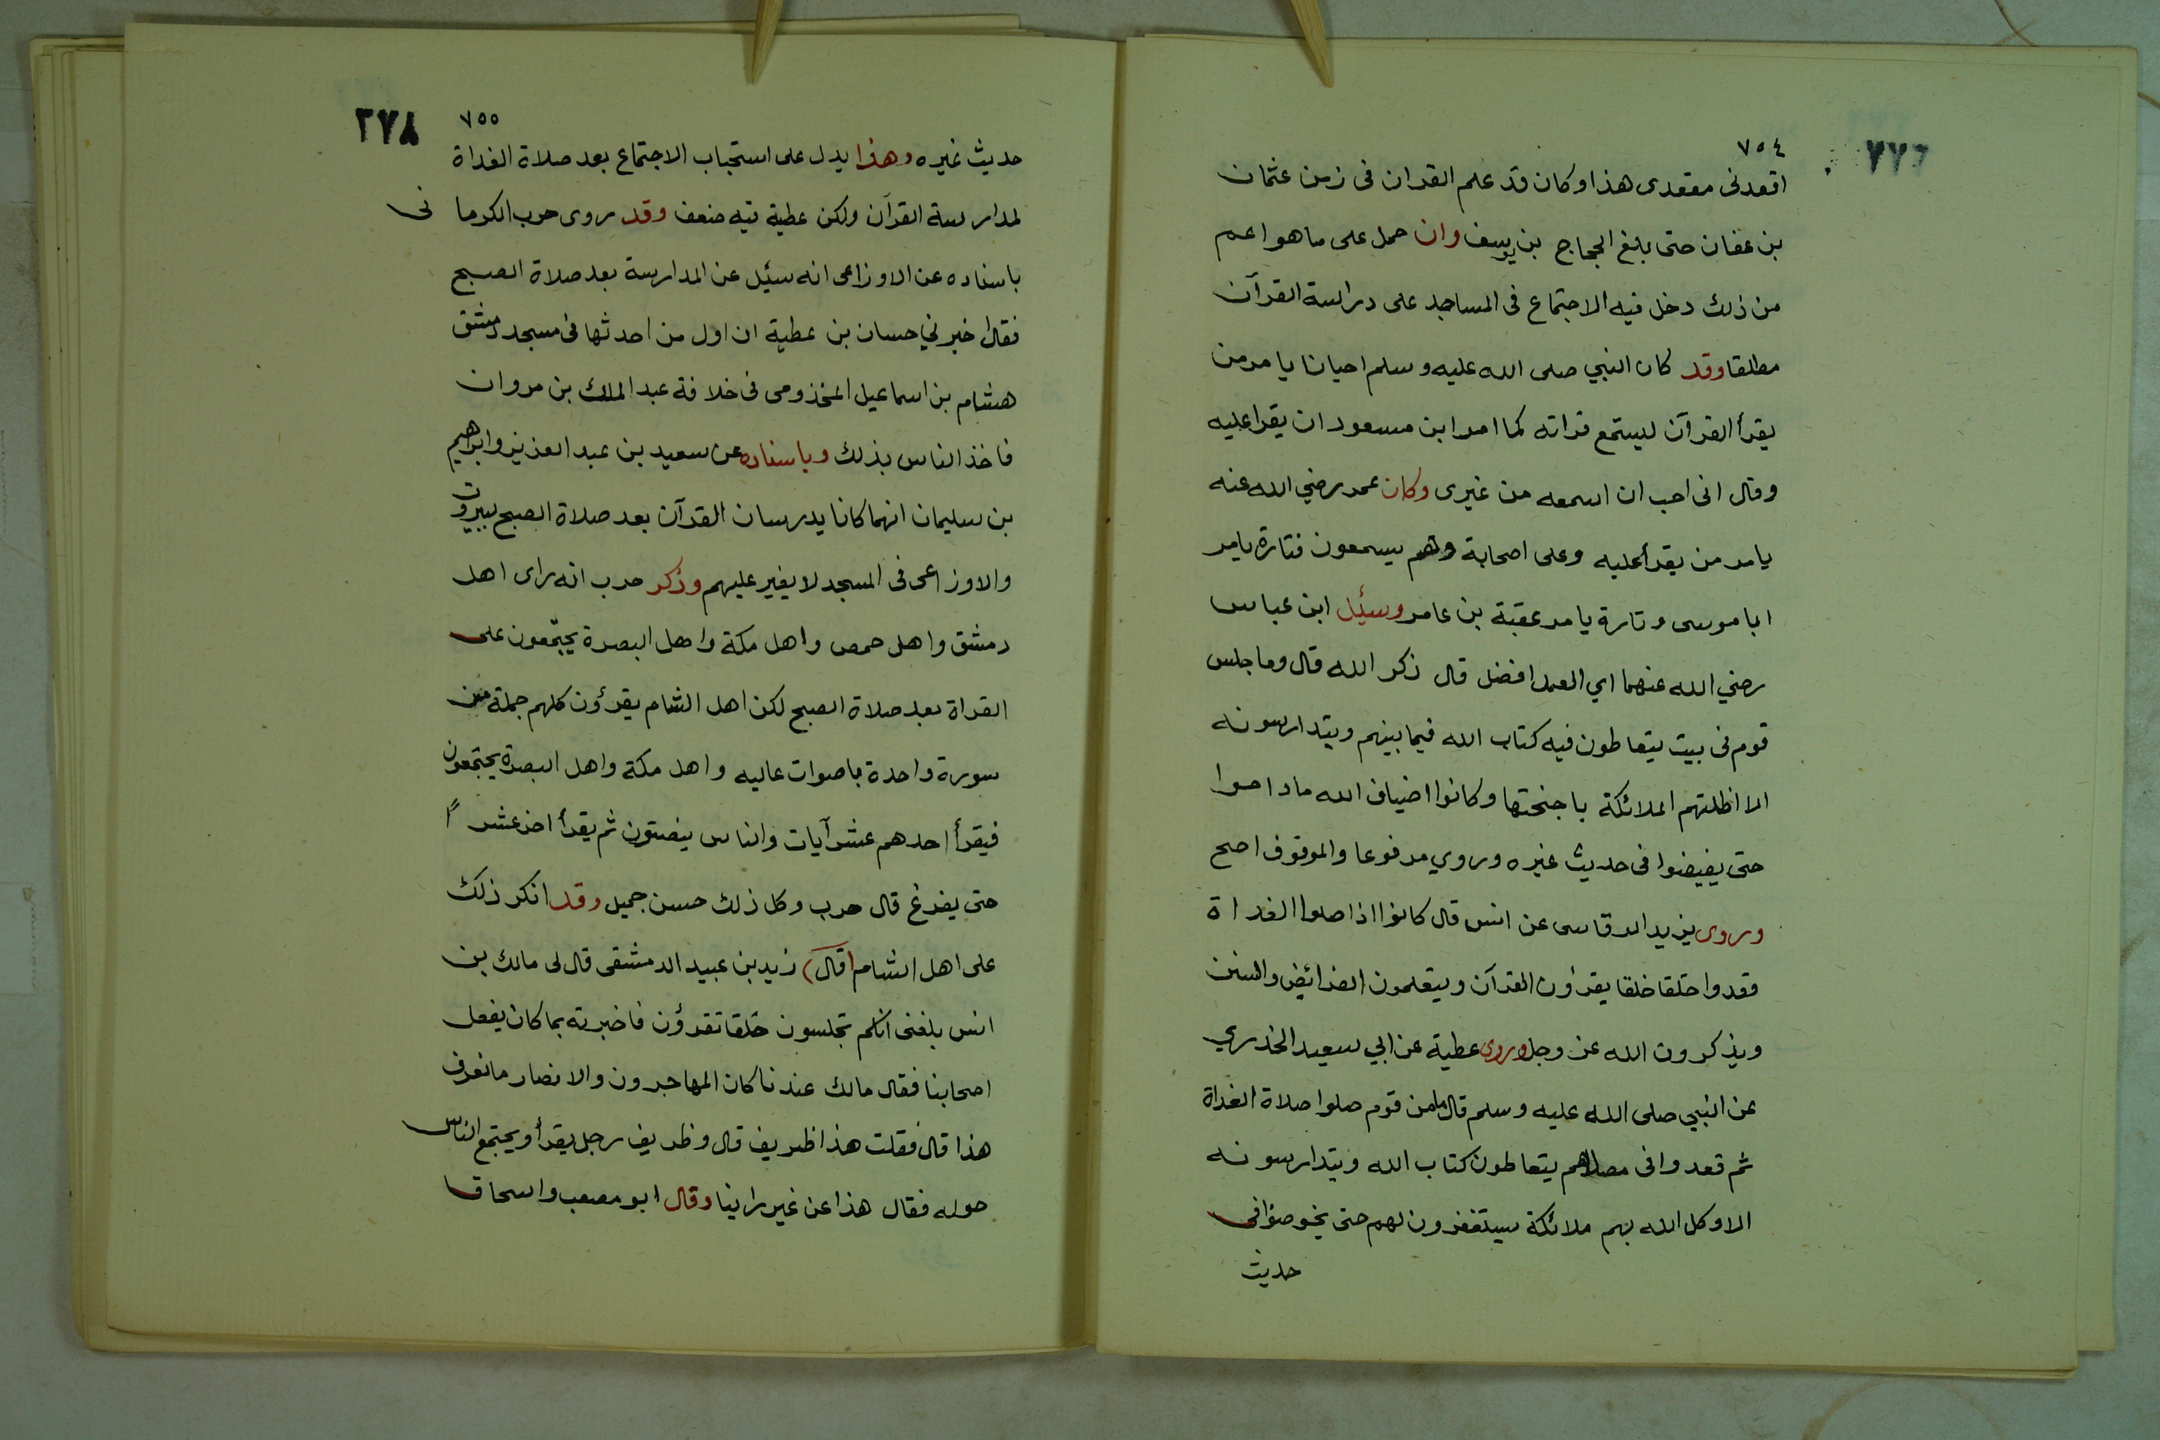 ٧٥٤
٧٧٦
اقعدنى مقعدى هذا وكان قد علم القران فى زمن عثمان
بن عفان حتى بلغ الحجاج بن يوسف وان حمل على ما هو اعم
من ذلك دخل فيه الاجتماع فى المساجد على دراسة القرآن
مطلقا وقد كان النبي صلى الله عليه وسلم احيانا يامر من
يقرأ القرآن ليستمع قراته كما امر ابن مسعود ان يقرا عليه
وقال انى احب ان اسمعه من غيرى وكان عمر رضي الله عنه
يامر من يقرأ عليه وعلى اصحابة وهم يسمعون فتارة يامر
ابا موسى وتارة يامر عقبة بن عامر وسئل ابن عباس
رضي الله عنهما اي العمل افضل قال ذكر الله قال وما جلس
قوم فى بيت يتعاطون فيه كتاب الله فيما بينهم ويتدارسونه
الا اظلتهم الملائكة باجنحتها وكانوا اضياف الله ما داموا
حتى يفيضوا فى حديث غيره وروي مرفوعا والموقوف اصح
وروى يزيد الرقاسى عن انس قال كانوا اذا صلوا الغداة
قعدوا حلقا حلقا يقرؤن القرآن ويتعلمون الفرائض والسنن
ويذكرون الله عز وجل وروى عطية عن ابي سعيد الخدري
عن النبي صلى الله عليه وسلم قال ما من قوم صلوا صلاة الغداة
ثم قعدوا فى مصلاهم يتعاطون كتاب الله ويتدارسونه
الا وكل الله بهم ملائكة يستغفرون لهم حتى يخوضوا فى
حديث
٧٥٥
٢٧٨
حديث غيره وهذا يدل على استحباب الاجتماع بعد صلاة الغداة
لمدارسة القرآن ولكن عطية فيه ضعف وقد روى حرب الكرمانى
باسناده عن الاوزاعى انه سئل عن المدارسة بعد صلاة الصبح
فقال اخبرني حسان بن عطية ان اول من احدثها فى مسجد دمشق
هشام بن اسماعيل المخزومى فى خلافة عبد الملك بن مروان
فاخذ الناس بذلك وباسناده عن سعيد بن عبد العزيز وابراهيم
بن سليمان انهما كانا يدرسان القرآن بعد صلاة الصبح ببيروت
والاوزاعى فى المسجد لا يغير عليهم وذكر حرب انه راى اهل
دمشق واهل حمص واهل مكة واهل البصرة يجتمعون على
القراة بعد صلاة الصبح لكن اهل الشام يقرؤن كلهم جملة من
سورة واحدة باصوات عاليه واهل مكة واهل البصرة يجتمعون
فيقرأ احدهم عشر آيات والناس ينصتون ثم يقرأ اخر عشراً
حتى يفرغ قال حرب وكل ذلك حسن جميل وقد انكر ذلك
على اهل الشام (قال) زيد بن عبيد الدمشقى قال لى مالك بن
انس بلغنى انكم تجلسون حلقا تقرؤن فاخبرته بما كان يفعل
اصحابنا فقال مالك عندنا كان المهاجرون والانصار ما نعرف
هذا قال فقلت هذا ظريف قال وظريف رجل يقرأ ويجتمع الناس
حوله فقال هذا عن غير راينا وقال ابو مصعب واسحاق